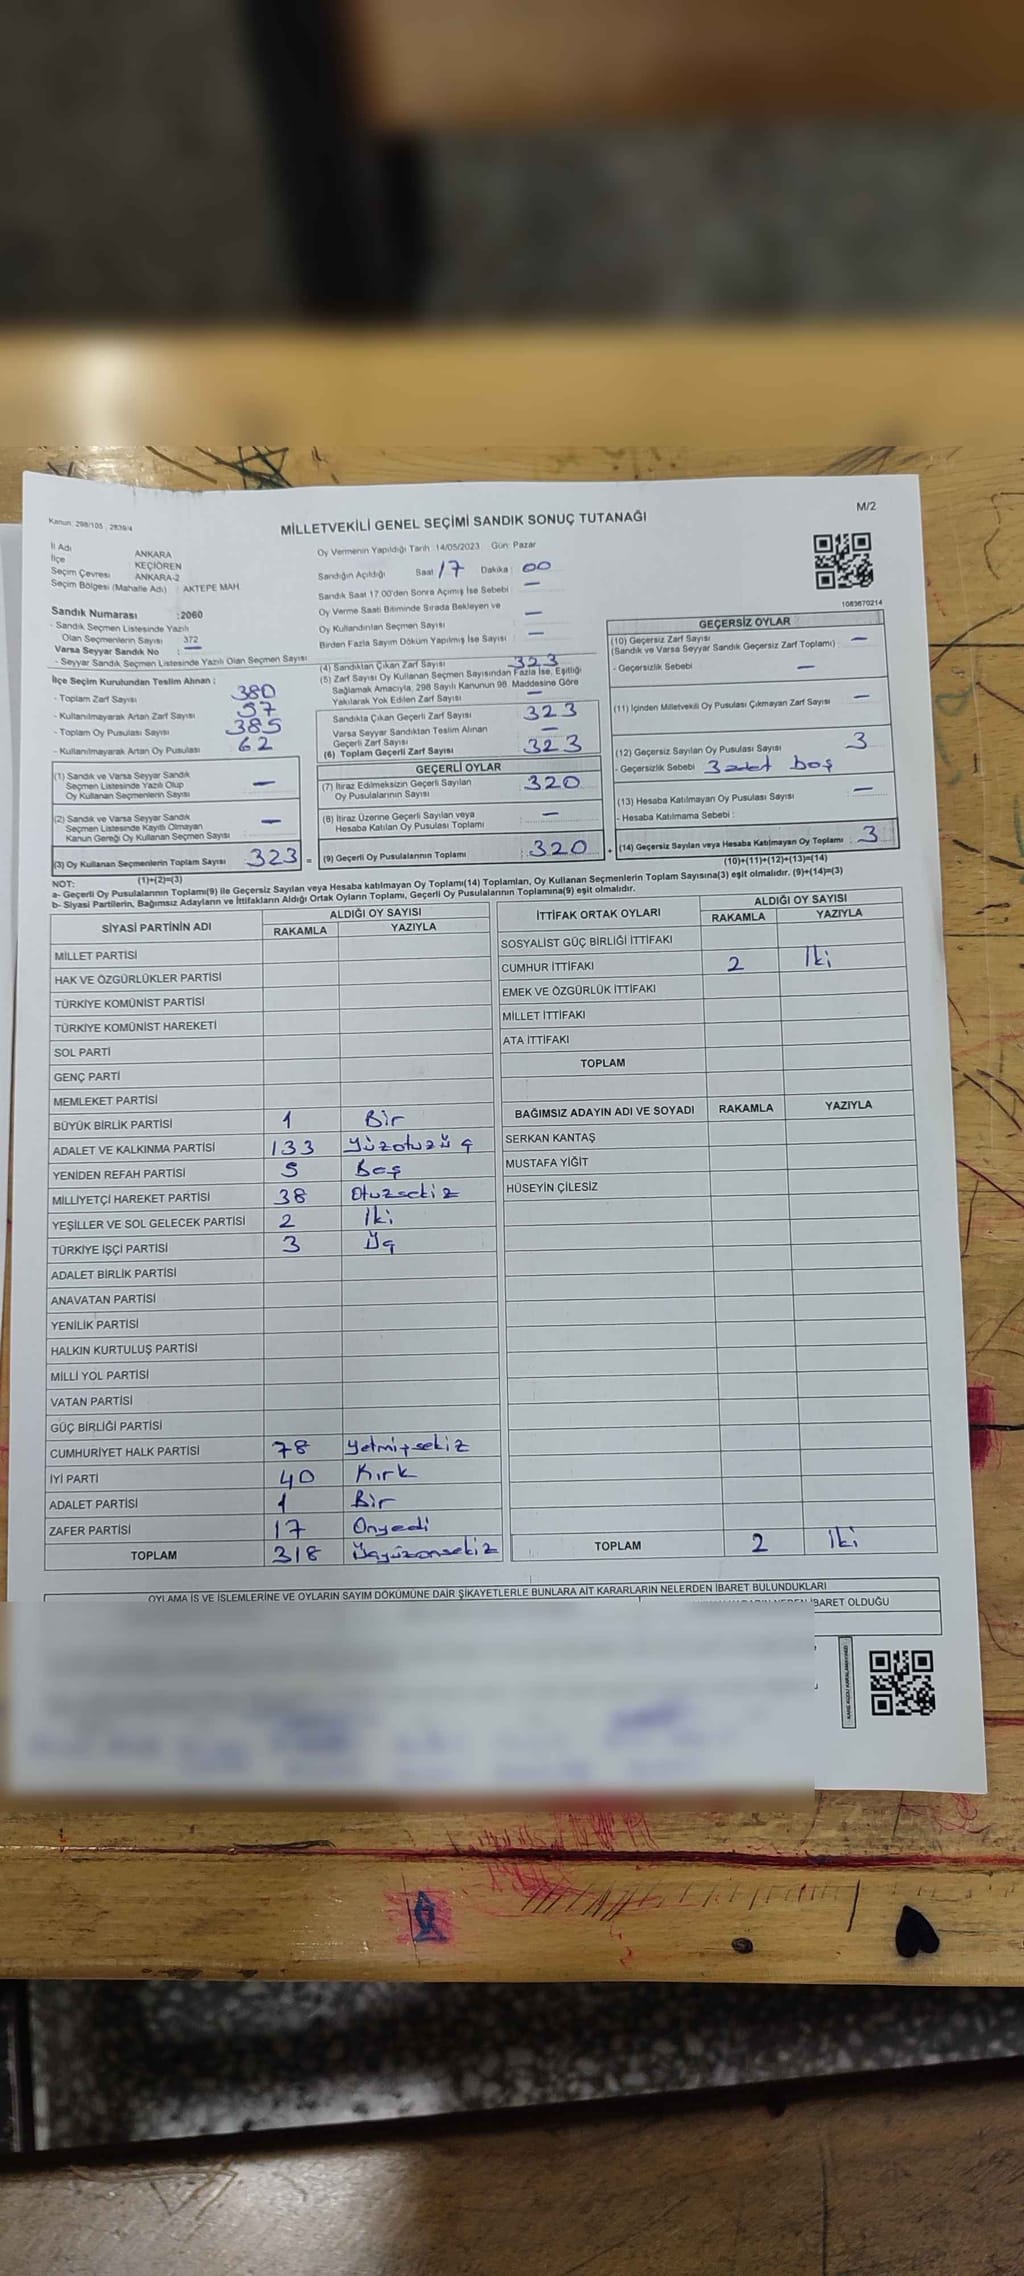 Kanun: 298/105 ; 2839/4
MİLLETVEKİLİ GENEL SEÇİMİ SANDIK SONUÇ TUTANAĞI
M/2
İl Adı ANKARA
İlçe KEÇİÖREN
Seçim Çevresi ANKARA-2
Seçim Bölgesi (Mahalle Adı) : AKTEPE MAH
Sandık Numarası :2060
- Sandık Seçmen Listesinde Yazılı
Olan Seçmenlerin Sayısı : 372
Varsa Seyyar Sandık No : —
- Seyyar Sandık Seçmen Listesinde Yazılı Olan Seçmen Sayısı
İlçe Seçim Kurulundan Teslim Alınan :
- Toplam Zarf Sayısı 380
- Kullanılmayarak Artan Zarf Sayısı 57
- Toplam Oy Pusulası Sayısı 385
- Kullanılmayarak Artan Oy Pusulası 62
(1) Sandık ve Varsa Seyyar Sandık
Seçmen Listesinde Yazılı Olup
Oy Kullanan Seçmenlerin Sayısı —
(2) Sandık ve Varsa Seyyar Sandık
Seçmen Listesinde Kayıtlı Olmayan
Kanun Gereği Oy Kullanan Seçmen Sayısı —
(3) Oy Kullanan Seçmenlerin Toplam Sayısı 323 =
(1)+(2)=(3)
Oy Vermenin Yapıldığı Tarih :14/05/2023 Gün: Pazar
Sandığın Açıldığı Saat 17 Dakika : 00
Sandık Saat 17.00'den Sonra Açımış İse Sebebi : —
Oy Verme Saati Bitiminde Sırada Bekleyen ve
Oy Kullandırılan Seçmen Sayısı —
Birden Fazla Sayım Döküm Yapılmış İse Sayısı : —
(4) Sandıktan Çıkan Zarf Sayısı 323
(5) Zarf Sayısı Oy Kullanan Seçmen Sayısından Fazla İse, Eşitliği
Sağlamak Amacıyla, 298 Sayılı Kanunun 98. Maddesine Göre
Yakılarak Yok Edilen Zarf Sayısı —
Sandıkta Çıkan Geçerli Zarf Sayısı 323
Varsa Seyyar Sandıktan Teslim Alınan
Geçerli Zarf Sayısı —
(6) Toplam Geçerli Zarf Sayısı 323
GEÇERLİ OYLAR
(7) İtiraz Edilmeksizin Geçerli Sayılan
Oy Pusulalarının Sayısı 320
(8) İtiraz Üzerine Geçerli Sayılan veya
Hesaba Katılan Oy Pusulası Toplamı —
(9) Geçerli Oy Pusulalarının Toplamı 320 +
1083670214
GEÇERSİZ OYLAR
(10) Geçersiz Zarf Sayısı
(Sandık ve Varsa Seyyar Sandık Geçersiz Zarf Toplamı) : —
- Geçersizlik Sebebi —
(11) İçinden Milletvekili Oy Pusulası Çıkmayan Zarf Sayısı —
(12) Geçersiz Sayılan Oy Pusulası Sayısı 3
- Geçersizlik Sebebi 3 adet boş
(13) Hesaba Katılmayan Oy Pusulası Sayısı —
- Hesaba Katılmama Sebebi :
(14) Geçersiz Sayılan veya Hesaba Katılmayan Oy Toplamı : 3
(10)+(11)+(12)+(13)=(14)
NOT:
a- Geçerli Oy Pusulalarının Toplamı(9) ile Geçersiz Sayılan veya Hesaba katılmayan Oy Toplamı(14) Toplamları, Oy Kullanan Seçmenlerin Toplam Sayısına(3) eşit olmalıdır. (9)+(14)=(3)
b- Siyasi Partilerin, Bağımsız Adayların ve İttifakların Aldığı Ortak Oyların Toplamı, Geçerli Oy Pusulalarının Toplamına(9) eşit olmalıdır.
SİYASİ PARTİNİN ADI ALDIĞI OY SAYISI
RAKAMLA YAZIYLA
MİLLET PARTİSİ
HAK VE ÖZGÜRLÜKLER PARTİSİ
TÜRKİYE KOMÜNİST PARTİSİ
TÜRKİYE KOMÜNİST HAREKETİ
SOL PARTİ
GENÇ PARTİ
MEMLEKET PARTİSİ
BÜYÜK BİRLİK PARTİSİ 1 Bir
ADALET VE KALKINMA PARTİSİ 133 Yüzotuzüç
YENİDEN REFAH PARTİSİ 5 Beş
MİLLİYETÇİ HAREKET PARTİSİ 38 Otuzsekiz
YEŞİLLER VE SOL GELECEK PARTİSİ 2 İki
TÜRKİYE İŞÇİ PARTİSİ 3 Üç
ADALET BİRLİK PARTİSİ
ANAVATAN PARTİSİ
YENİLİK PARTİSİ
HALKIN KURTULUŞ PARTİSİ
MİLLİ YOL PARTİSİ
VATAN PARTİSİ
GÜÇ BİRLİĞİ PARTİSİ
CUMHURİYET HALK PARTİSİ 78 Yetmişsekiz
İYİ PARTİ 40 Kırk
ADALET PARTİSİ 1 Bir
ZAFER PARTİSİ 17 Onyedi
TOPLAM 318 Üçyüzonsekiz
İTTİFAK ORTAK OYLARI ALDIĞI OY SAYISI
RAKAMLA YAZIYLA
SOSYALİST GÜÇ BİRLİĞİ İTTİFAKI
CUMHUR İTTİFAKI 2 İki
EMEK VE ÖZGÜRLÜK İTTİFAKI
MİLLET İTTİFAKI
ATA İTTİFAKI
TOPLAM
BAĞIMSIZ ADAYIN ADI VE SOYADI RAKAMLA YAZIYLA
SERKAN KANTAŞ
MUSTAFA YİĞİT
HÜSEYİN ÇİLESİZ
TOPLAM 2 İki
OYLAMA İŞ VE İŞLEMLERİNE VE OYLARIN SAYIM DÖKÜMÜNE DAİR ŞİKAYETLERLE BUNLARA AİT KARARLARIN NELERDEN İBARET BULUNDUKLARI
İBARET OLDUĞU